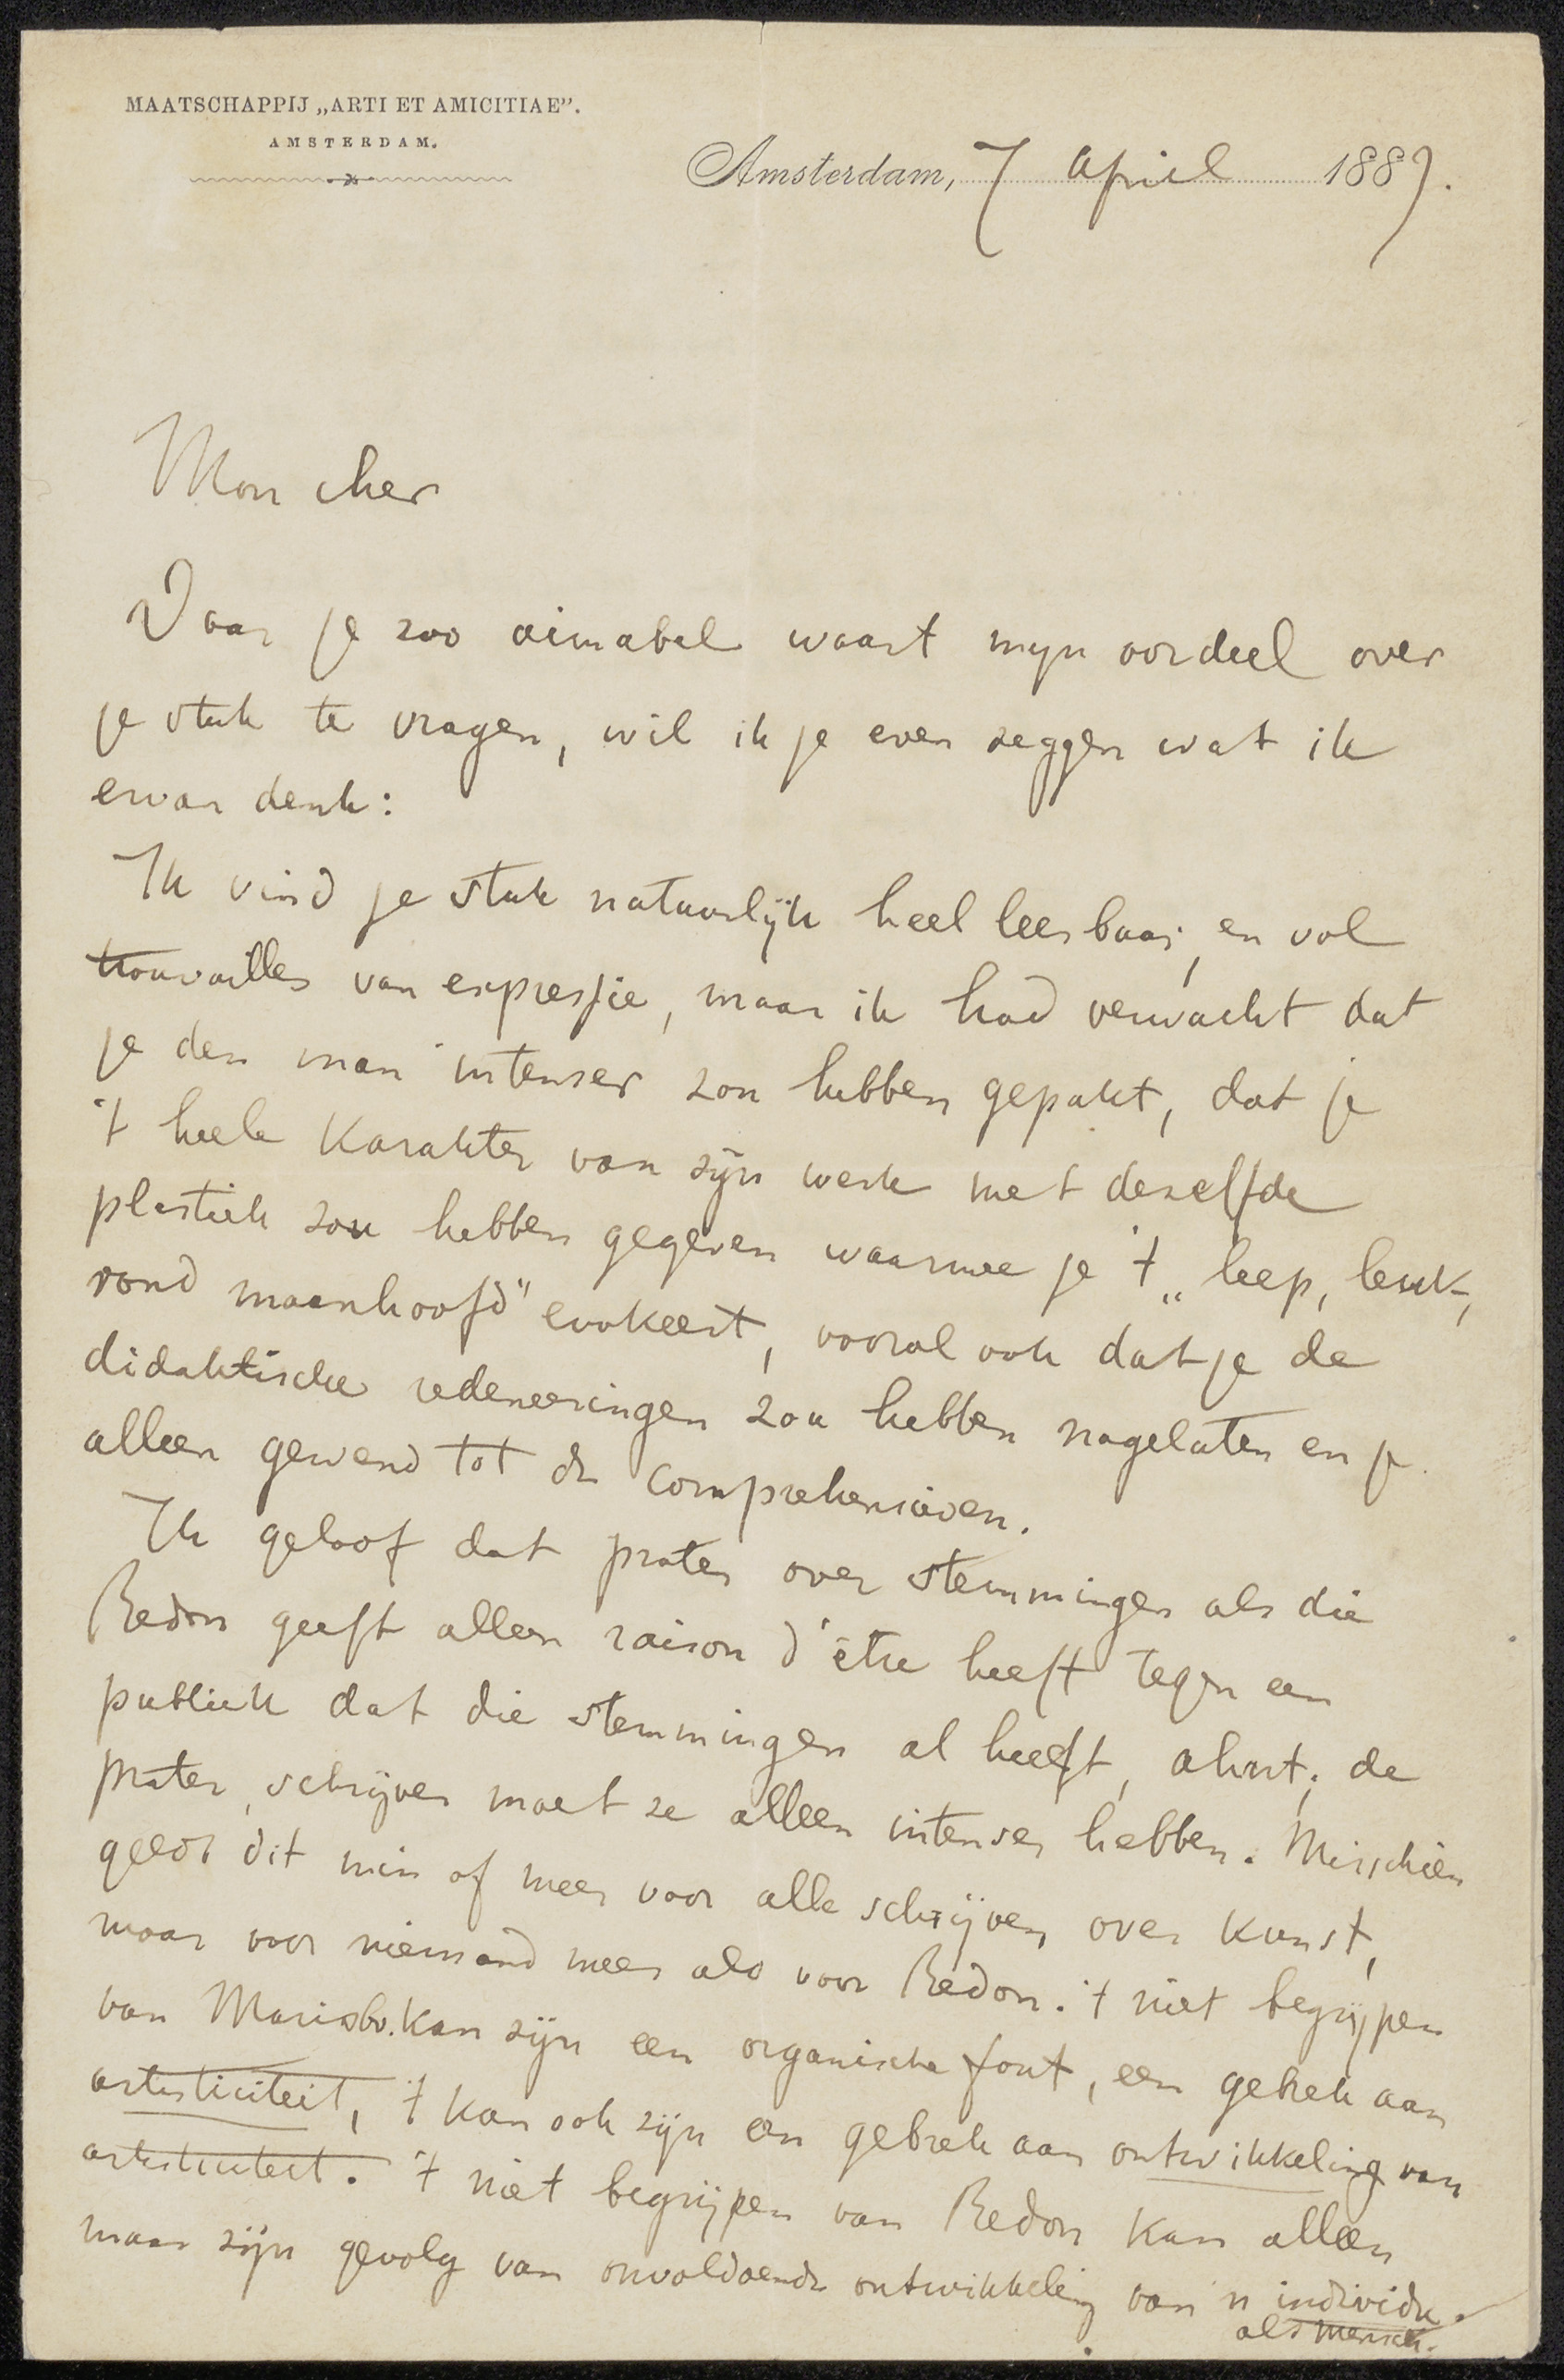 MAATSCHAPPIJ „ARTI ET AMICITIAE”.
AMSTERDAM.
Amsterdam, 7 April 1889.
Mon cher
Daar je zoo aimabel waart mijn oordeel over
je stuk te vragen, wil ik je even zeggen wat ik
ervan denk:
Ik vind je stuk natuurlijk heel leesbaar, en vol
trouvailles van expressie, maar ik had verwacht dat
je den man intenser zou hebben gepakt, dat je
't heele karakter van zijn werk met dezelfde
plastiek zou hebben gegeven waarmee je 't „leep, leuk,
rond maanhoofd" evokeert, vooral ook dat je de
didaktische redeneeringen zou hebben nagelaten en je
alleen gewend tot de comprehensieven.
Ik geloof dat praten over stemmingen als die
Redon geeft alleen raison d'être heeft tegen een
publiek dat die stemmingen al heeft, althans; de
prater, schrijver moet ze alleen intenser hebben. Misschien
geldt dit min of meer voor alle schrijven over kunst,
maar voor niemand meer als voor Redon. 't niet begrijpen
van Maris bv. kan zijn een organische fout, een gebrek aan
artisticiteit, 't kan ook zijn een gebrek aan ontwikkeling van
artisticiteit. 't niet begrijpen van Redon kan alleen
maar zijn gevolg van onvoldoende ontwikkeling van 'n individu
als mensch.